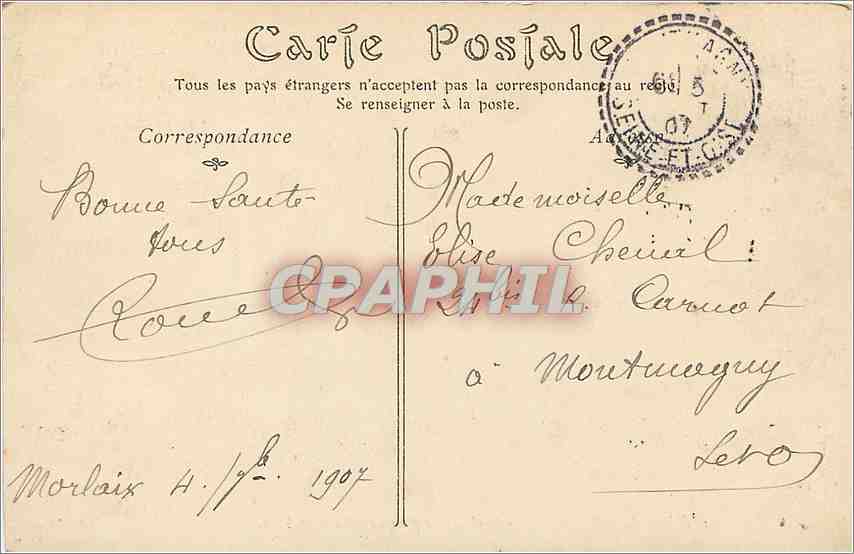 Carte Postale
Tous les pays étrangers n'acceptent pas la correspondance au recto
Se renseigner à la poste.
Correspondance
Adresse
Bonne Santé
tous
Morlaix 4. 7b. 1907
Mademoiselle
Elise
24 bis R. Carnot
à Montmagny
SetO
SEINE-ET-OISE
5
07
CPAPHIL